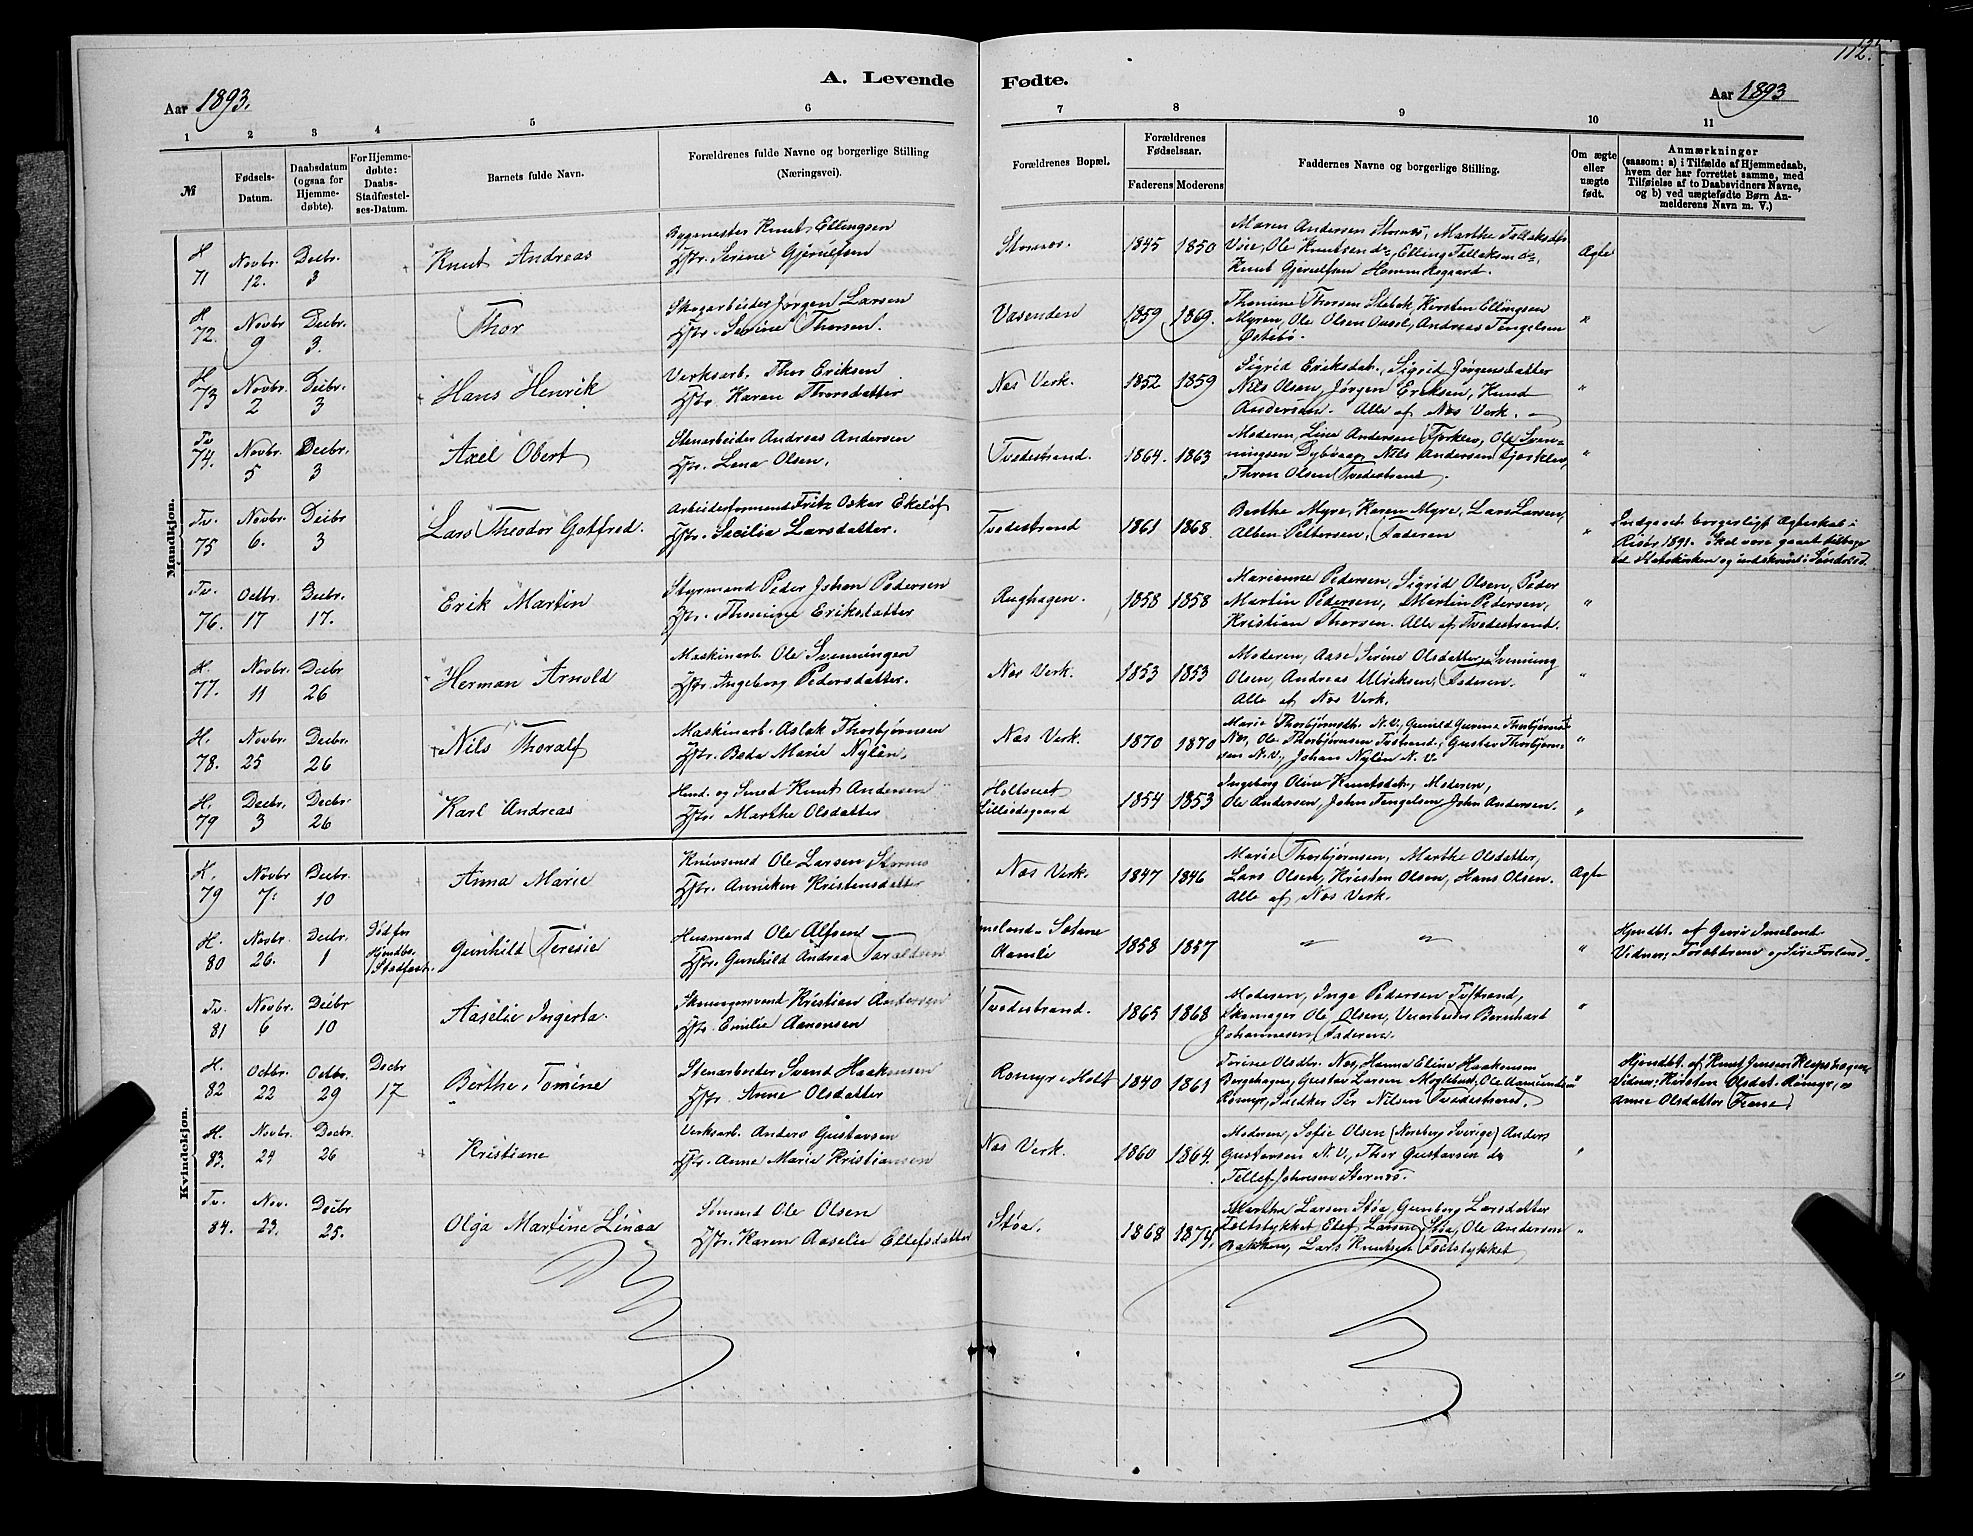 112.
A. Levende Fødte.
Aar 1893. Aar 1893
1 2 3 4 5 6 7 8 9 10 11
№ Fødsels-Datum. Daabsdatum (ogsaa for Hjemmedøbte). For Hjemmedøbte: Daabs-Stadfæstelses-Datum. Barnets fulde Navn. Forældrenes fulde Navne og borgerlige Stilling (Næringsvei). Forældrenes Bopæl. Forældrenes Fødselsaar. Faderens Moderens Faddernes Navne og borgerlige Stilling. Om ægte eller uægte født. Anmærkninger (saasom: a) i Tilfælde af Hjemmedaab, hvem der har forrettet samme, med Tilføielse af to Daabsvidners Navne, og b) ved uægtefødte Børn Anmelderens Navn m. V.)
Mandkjøn.
H 71 Novbr. 12. Decbr. 3 Knut Andreas Bygmester Knut Ellingsen Hstr. Serine Gjerulfsen Stornes. 1845 1850 Maren Andersen Stornes, Marthe Tellaksdtr Voie, Ole Knutsen do, Elling Tellaksen do, Knut Gjerulfsen Hommesgaard. Ægte
H 72. Novbr 9 Decbr. 3. Thor Skogarbeider Jørgen Larsen Hstr. Serine Thorsen. Vasenden 1859 1869. Thomine Thorsen Stebok, Kirsten Ellingsen Myren, Ole Olsen Aassl, Andreas Tengelsen Østebø. "
H. 73 Novbr. 2 Decbr. 3 Hans Henrik Verksarb. Thor Eriksen Hstr. Karen Thorsdatter Nes Verk. 1852 1859 Sigrid Eriksdat., Sigrid Jørgensdatter Nils Olsen, Jørgen Eriksen, Knud Andersen. Alle af Nes Verk. "
Tv 74. Novbr. 5 Decbr. 3 Axel Obert Stenarbeider Andreas Andersen Hstr. Lena Olsen. Tvedestrand. 1864. 1863 Moderen, Line Andersen Fjorklev, Ole Svenningsen Dybvaag, Nils Andersen Fjorklev, Thron Olsen Tvedestrand. "
Tv. 75 Novbr. 6. Decbr 3 Lars Theodor Gotfred. Arbeidsformand Fritz Oskar Ekeløf Hstr. Secilia Larsdatter. Tvedestrand 1861 1868. Berthe Myre, Karen Myre, Lars Larsen, Alben Pettersen, Faderen " Indgaaet borgerligt Ægteskab i Risør 1891. Skal vere gaaet tilbage til Statskirken og indskrevet i Søndeled.
Tv. 76. Octbr. 17 Decbr. 17. Erik Martin Styrmand Peder Johan Pedersen Hstr. Thomine Eriksdatter Rughagen. 1858 1858 Marianne Pedersen, Sigrid Olsen, Peder Martin Pedersen, Martin Pedersen, Kristian Thorsen. Alle af Tvedestrand. "
H. 77. Novbr. 11 Decbr 26 Herman Arnold Maskinarb. Ole Svenningen Hstr. Ingeborg Pedersdatter. Nes Verk. 1853 1853 Moderen, Aase Serine Olsdatter, Svenning Olsen, Andreas Ulriksen, Faderen. Alle af Nes Verk. "
H. 78. Novbr. 25 Decbr 26 Nils Thoralf Maskinarb. Aslak Thorbjørnsen Hstr. Beda Marie Nylén. Nes Verk. 1870 1870 Marie Thorbjørnsdtr. N.V., Gunild Gurine Thorbjørnsdt Nes, Ole Thorbjørnsen Tvstrand., Gustav Thorbjørnsen N.V., Johan Nylén N.V. "
H. 79 Decbr. 3 Decbr 26 Karl Andreas Husd. og Smed Knut Andersen Hstr Marthe Olsdatter Holtsnet Lilleødegaard 1854 1853 Ingeborg Oline Knutsdat., Moderen, Ole Andersen, John Tengelsen, John Andersen. "
Kvindekjøn.
H. 79 Novbr 7. Decbr. 10 Anna Marie Knivsmed Ole Larsen Stornes Hstr. Anniken Kristensdatter Nes Verk. 1847 1846 Marie Thorbjørnsen, Marthe Olsdatter, Lars Olsen, Kristen Olsen, Hans Olsen. Alle af Nes Verk. Ægte
H. 80 Novbr. 26. Decbr. 1 Død før Hjmdbs. Stadfæst. Gunhild Teresie Husmand Ole Alfsen Hstr. Gunhild Andrea Taraldsen 1858 1857 " " " Hjmdbt. af Vidner, Forældrene og
Tv. 81 Novbr. 6 Decbr 10 Aaselie Ingerta. Skomagersvend Kristian Andersen Hstr. Emilie Aanonsen Tvedestrand. 1865 1868 Moderen, Inge Pedersen Tvstrand, Skomager Ole Olsen, Veiarbeider Bernhard Johannesen, Faderen. "
H. 82 Octbr. 22 Octbr. 29 Decbr 17 Berthe Tomine Stenarbeider Svend Haakensen Hstr. Anne Olsdatter Romyr i Holt 1840 1861 Torine Olsdtr. Nes, Hanne Eline Haakensen Berghagen, Gustav Larsen Møglebust, Ole Aamundsen Rømyr, Snedker Per Nilsen Tvedestrand. " Hjmdbt. af Knut Jensen Vidner, Kirsten Olsdat. Rømyr, Anne Olsdatter
H. 83. Novbr. 24 Decbr. 26 Kristiane Verksarb. Anders Gustavsen Hstr. Anne Marie Kristiansen Nes Verk. 1860 1864. Moderen, Sofie Olsen (Noraberg Sverige) Anders Gustavsen N.V., Thor Gustavsen do Tellef Johnsen Stornes. "
Tv. 84. Nov. 23. Decbr 25. Olga Martine Linaa Sømand Ole Olsen Hstr. Karen Aaselie Ellefsdatter Støa. 1868 1874. Marthe Larsen Støa, Gunborg Larsdatter Toltstykket, Elef Larsen Støa, Ole Andersen Bakken, Lars Knutsen Toltstykket "